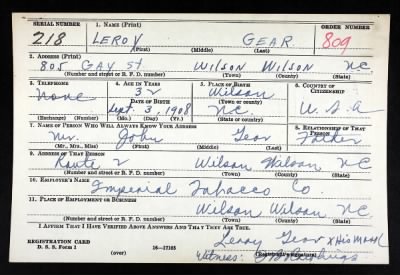 SERIAL NUMBER 1. NAME (Print) ORDER NUMBER
218 LEROY GEAR 809
(First) (Middle) (Last)
2. ADDRESS (Print)
805 GAY ST. WILSON WILSON N.C.
(Number and street or R. F. D. number) (Town) (County) (State)
3. TELEPHONE 4. AGE IN YEARS 5. PLACE OF BIRTH 6. COUNTRY OF CITIZENSHIP
None 32 Wilson
DATE OF BIRTH (Town or county)
Sept. 3, 1908 N.C. U.S.A
(Exchange) (Number) (Mo.) (Day) (Yr.) (State or country)
7. NAME OF PERSON WHO WILL ALWAYS KNOW YOUR ADDRESS 8. RELATIONSHIP OF THAT PERSON
Mr. John Gear Father
(Mr., Mrs., Miss) (First) (Middle) (Last)
9. ADDRESS OF THAT PERSON
Route 2 Wilson Wilson N.C
(Number and street or R. F. D. number) (Town) (County) (State)
10. EMPLOYER'S NAME
Imperial Tobacco Co.
11. PLACE OF EMPLOYMENT OR BUSINESS
Wilson Wilson N.C.
(Number and street or R. F. D. number) (Town) (County) (State)
I AFFIRM THAT I HAVE VERIFIED ABOVE ANSWERS AND THAT THEY ARE TRUE.
REGISTRATION CARD Leroy Gear x His Mark
D. S. S. Form 1 (over) 16—17105 (Registrant's signature)
Witness: